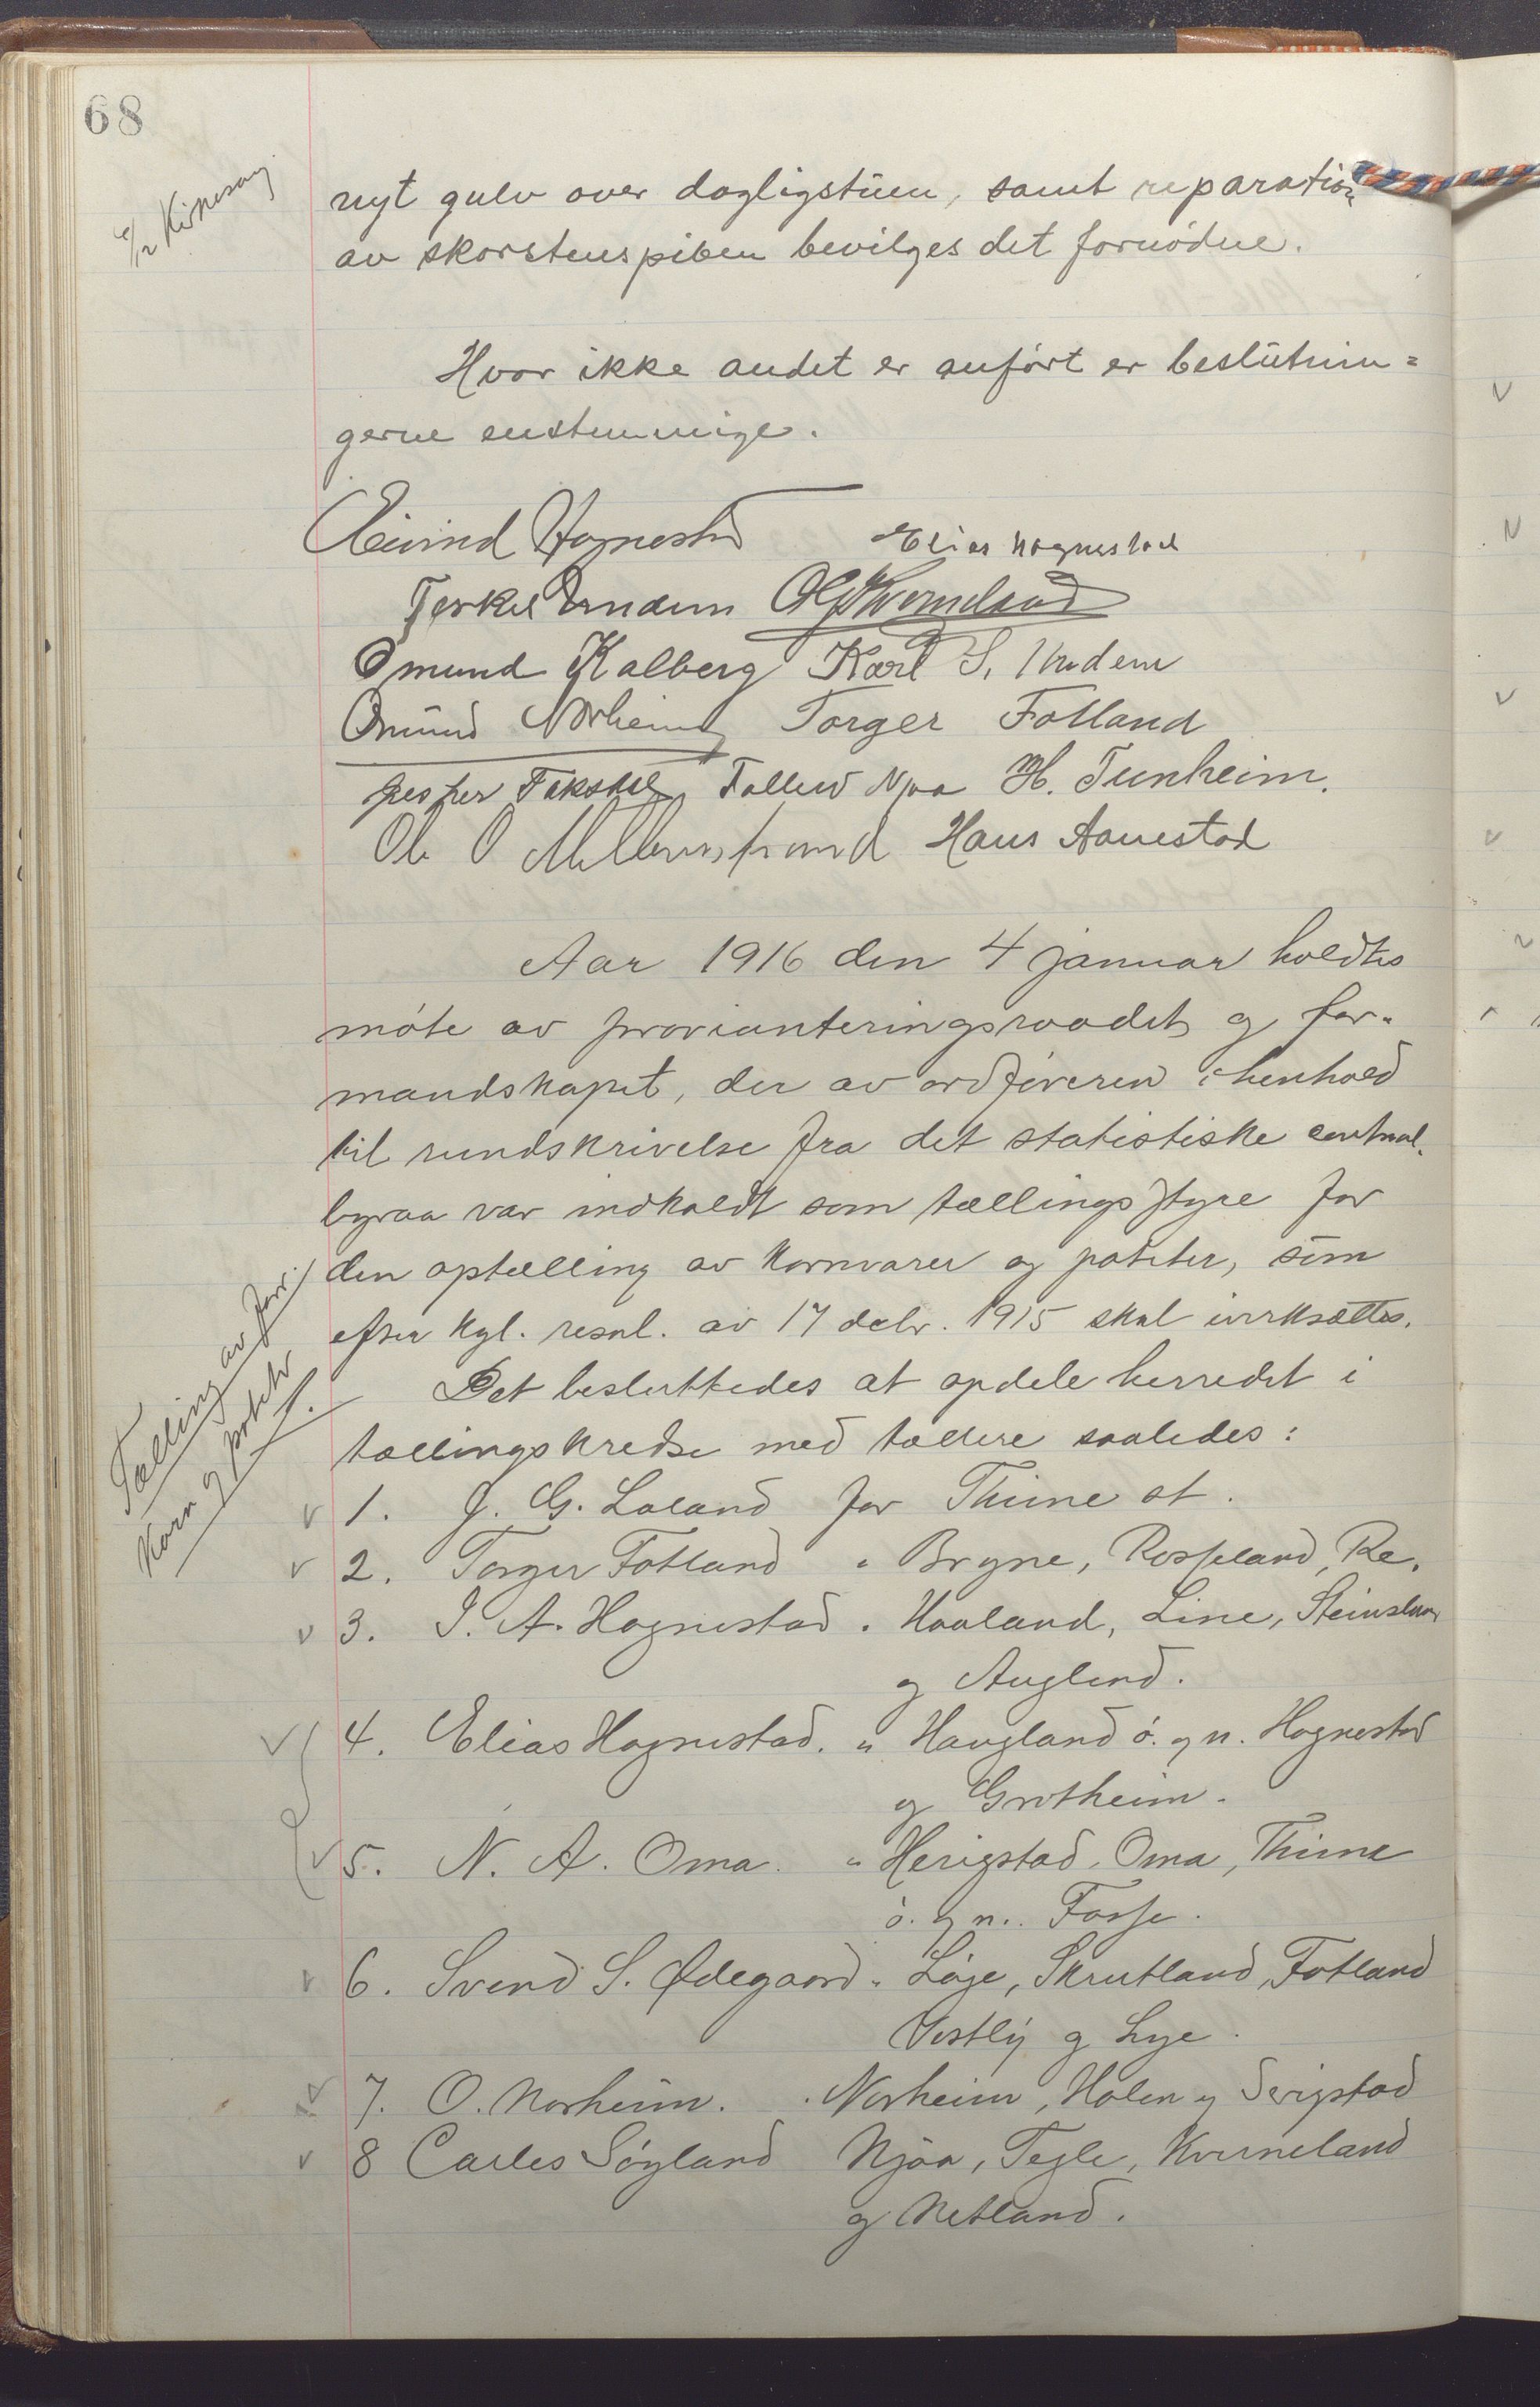 68
nyt gulv over dagligstuen, samt reparation
av skorstenspiben bevilges det fornødne.
Hvor ikke andet er anført er beslutnin=
gerne enstemmige.
Eivind Hognestad Elias Hognestad
Terkel Undem
Omund Kalberg Karl S. Undem
Omund Norheim Torger Fotland
Jesper Tollew Njaa H. Tunheim.
Ole O Hans Aanestad
Aar 1916 den 4 januar holdtes
møte av provianteringsraadet og for-
mandskapet, der av ordføreren i henhold
til rundskrivelse fra det statistiske central-
byraa var indkaldt som tællingsstyre for
den optælling av kornvarer og poteter, som
efter kgl. resol. av 17 decbr. 1915 skal iverksættes.
Det besluttedes at opdele herredet i
tællingskredse med tællere saaledes:
Tælling av
korn og poteter
1. J. G. Laland for Thime st.
2. Torger Fotland " Bryne, Rosseland, Re.
3. I. A. Hognestad " Haaland, Line, Steinsland
og Auglend.
4. Elias Hognestad. " Haugland ø. og n. Hognestad
og Grotheim.
5. N. A. Oma. " Herigstad, Oma, Thime
ø. og n. Fosse.
6. Svend S. Ødegaard " Løge, Skrutland, Fotland
Vestly og Lye.
7. O. Norheim. " Norheim, Holen og Serigstad
8 Carles Søyland Njaa, Tegle, Kverneland
og Netland.